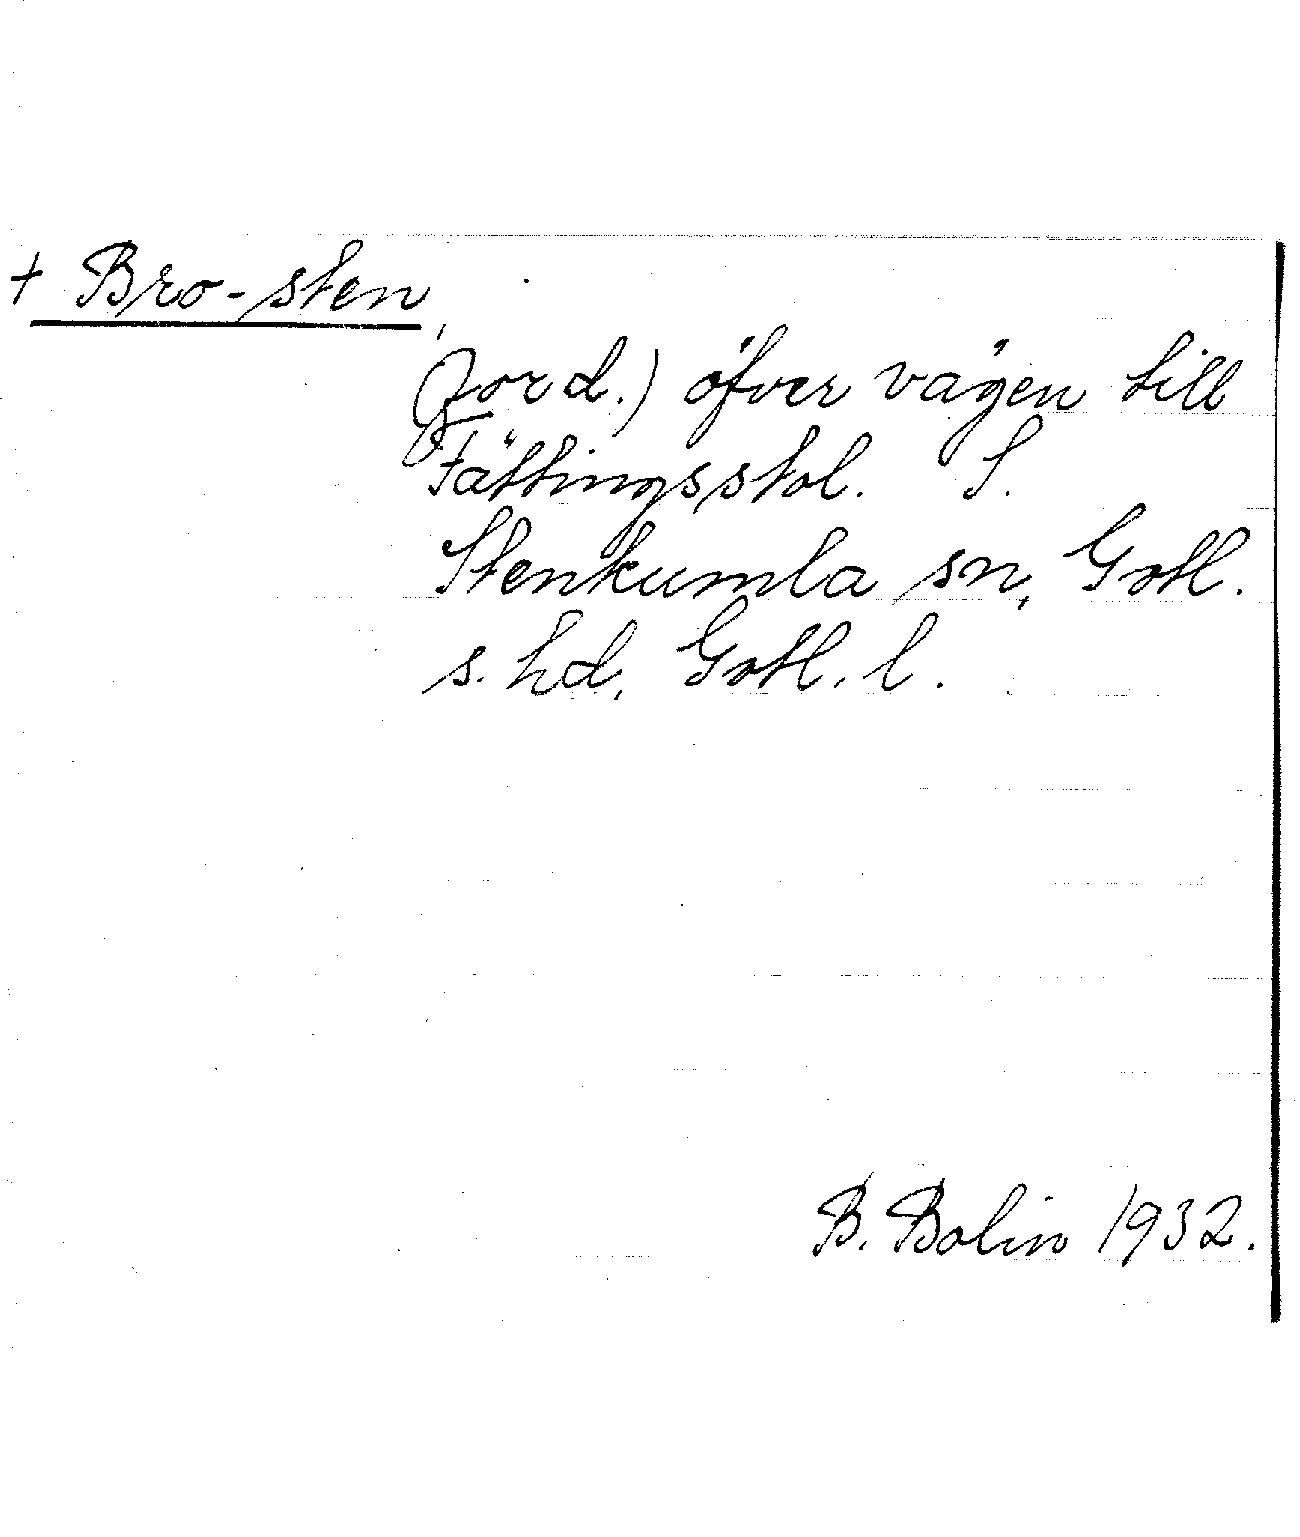 + Bro-sten,
(Jord.) öfver vägen till
Fättingsstol. S.
Stenkumla sn, Gotl.
s. hd, Gotl. l.
B. Bolin 1932.